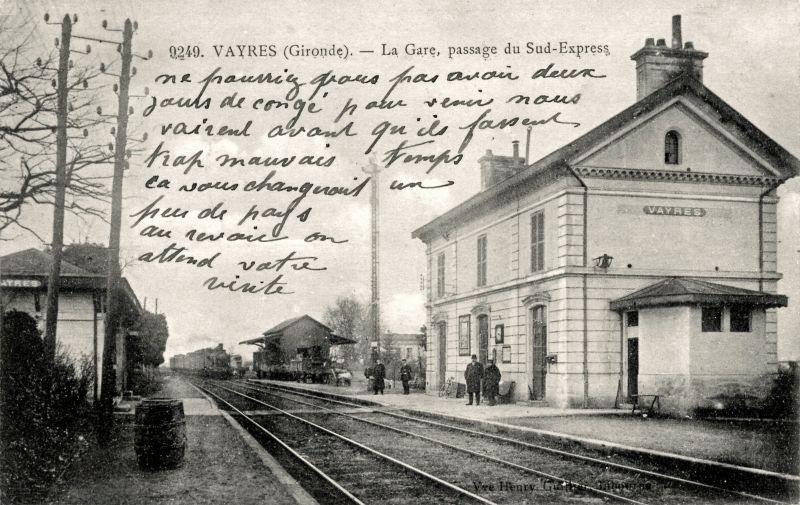 9249. VAYRES (Gironde). — La Gare, passage du Sud-Express
ne pourriez vous pas avoir deux
jours de congé pour venir nous
voir avant qu'ils fassent
trop mauvais temps
ca vous changerait un
peu de pays
au revoir on
attend votre
visite
VAYRES
VAYRES
Vve Henry Guillier, Libourne